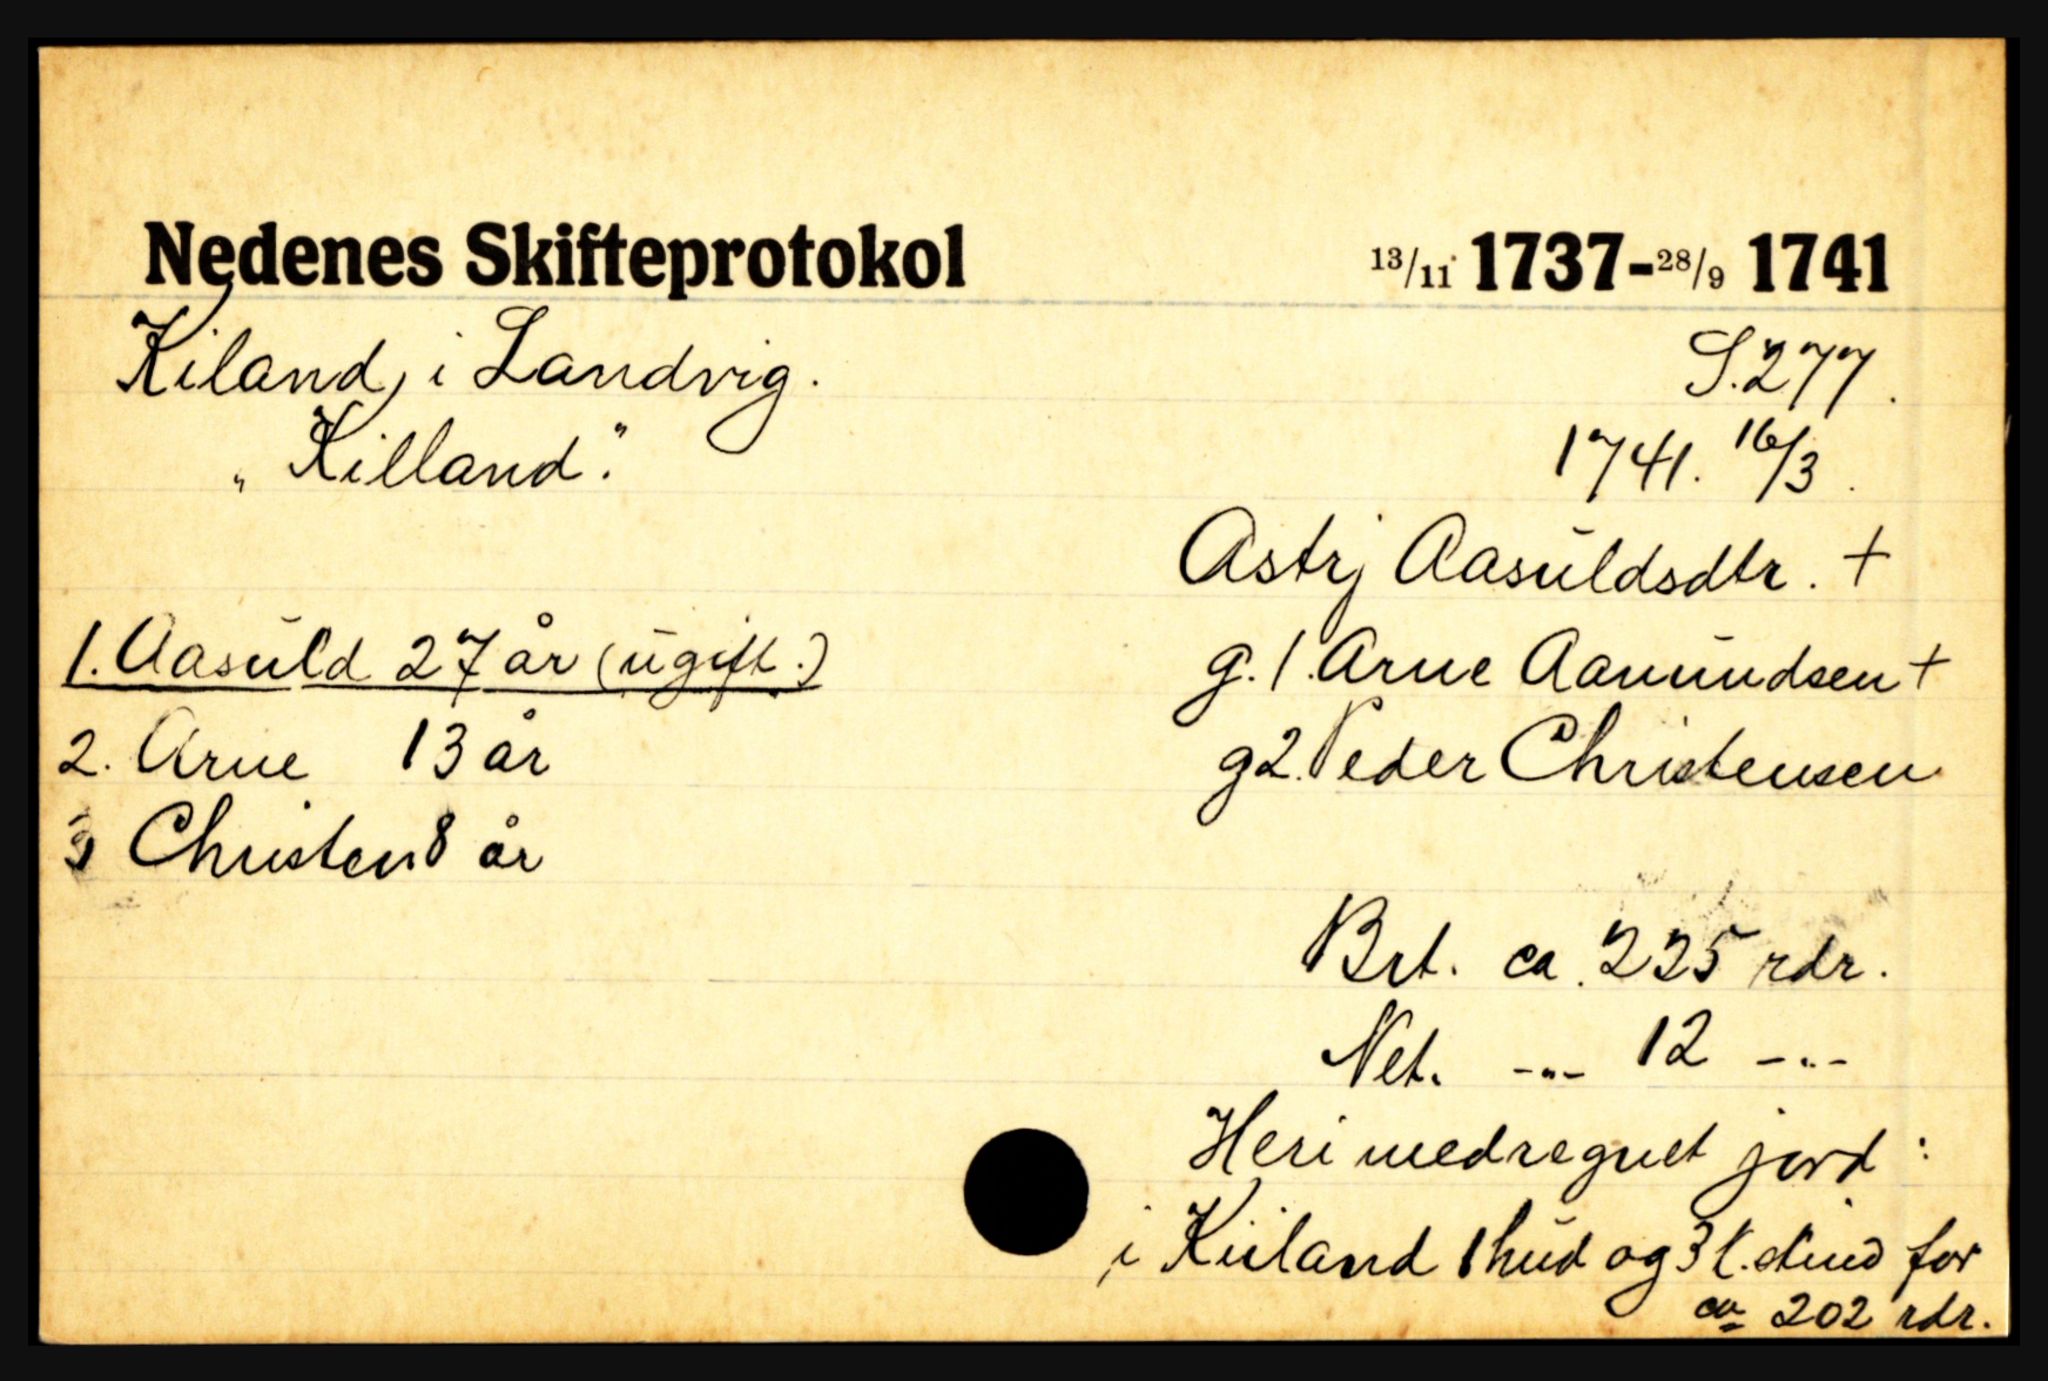 Nedenes Skifteprotokol 13/11 1737-28/9 1741
Kiland, i Landvig. S. 277.
"Killand". 1741. 16/3.
Astrj Aasuldsdtr. +
1. Aasuld 27 år (ugift.) g. 1. Arne Aamundsen +
2. Arne 13 år g2. Peder Christensen
3 Christen 8 år
Brt. ca. 225 rdr.
Net. -"- 12 -"-
Heri medregnet jord:
i Kiiland 1 hud og 3 k. skind for
ca 202 rdr.